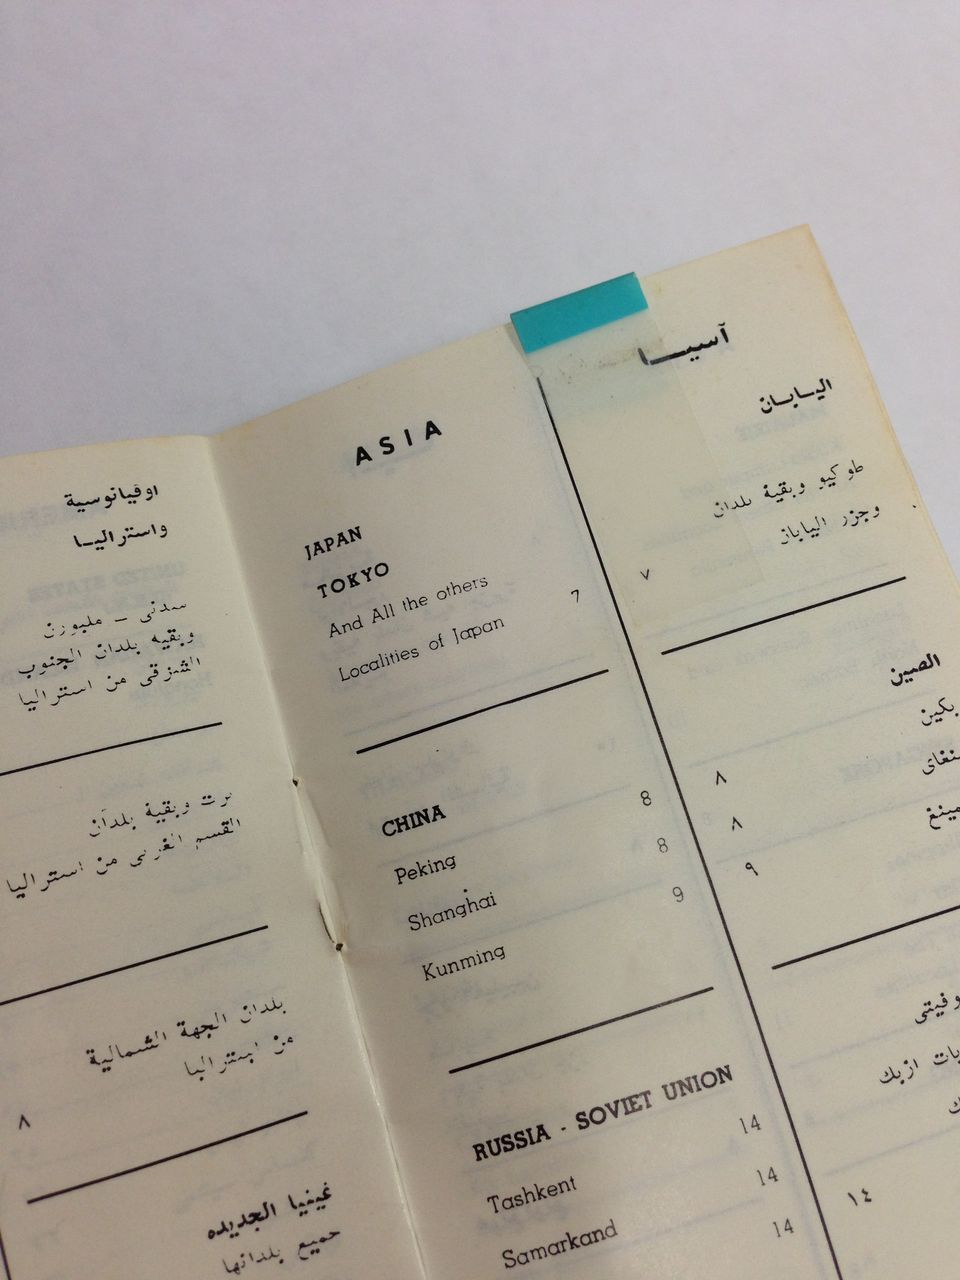 اوقيانوسية
واستراليـا
سدنى - ملبورن
وبقيه بلدان الجنوب
الشرقى من استراليا
برت وبقية بلدان
القسم الغربى من استراليا
بلدان الجهة الشمالية
من استراليا
٨
غينيا الجديده
جميع بلدانها
ASIA
JAPAN
TOKYO
And All the others
Localities of Japan 7
CHINA
Peking 8
Shanghai 8
Kunming 9
RUSSIA - SOVIET UNION
Tashkent 14
Samarkand 14
14
آسيـــا
اليـابـان
طوكيو وبقية بلدان
وجزر اليابان
٧
الصين
بكين ٨
٨
٩
ازبك
١٤